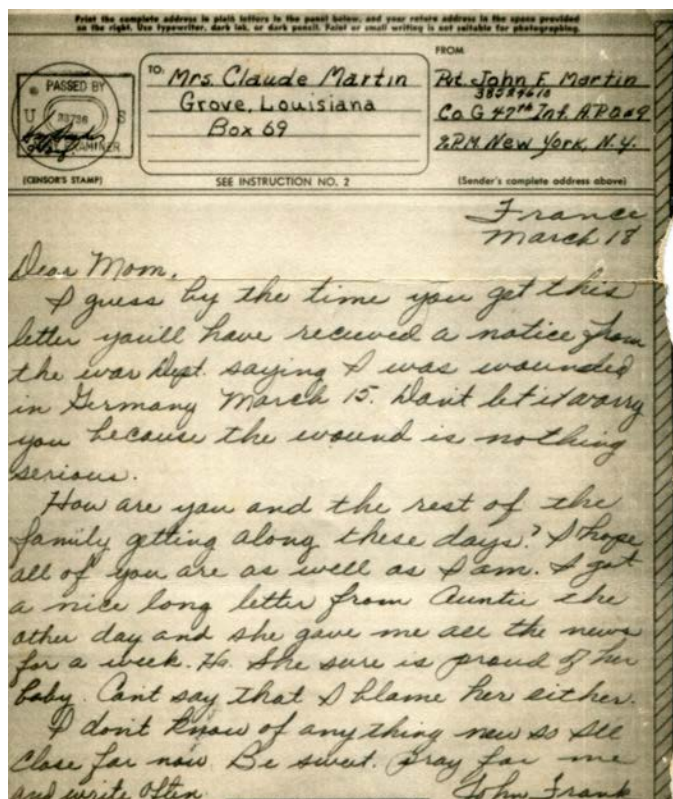 Print the complete address in plain letters in the panel below, and your return address in the space provided
on the right. Use typewriter, dark ink, or dark pencil. Faint or small writing is not suitable for photographing.
FROM
TO: Mrs. Claude Martin
Grove, Louisiana
Box 69
Pvt. John F. Martin
38589610
Co G 47th Inf. A.P.O. #9
℅ P.M. New York, N.Y.
PASSED BY
U S
ARMY EXAMINER
(CENSOR'S STAMP)
SEE INSTRUCTION NO. 2
(Sender's complete address above)
France
March 18
Dear Mom,
I guess by the time you get this
letter you'll have recieved a notice from
the war Dept. saying I was wounded
in Germany March 15. Don't let it worry
you because the wound is nothing
serious.
How are you and the rest of the
family getting along these days? I hope
all of you are as well as I am. I got
a nice long letter from Auntie the
other day and she gave me all the news
for a week. Ha. She sure is proud of her
baby. Cant say that I blame her either.
I don't know of anything new so I'll
close for now. Be sweet. Pray for me
and write often.
John Frank